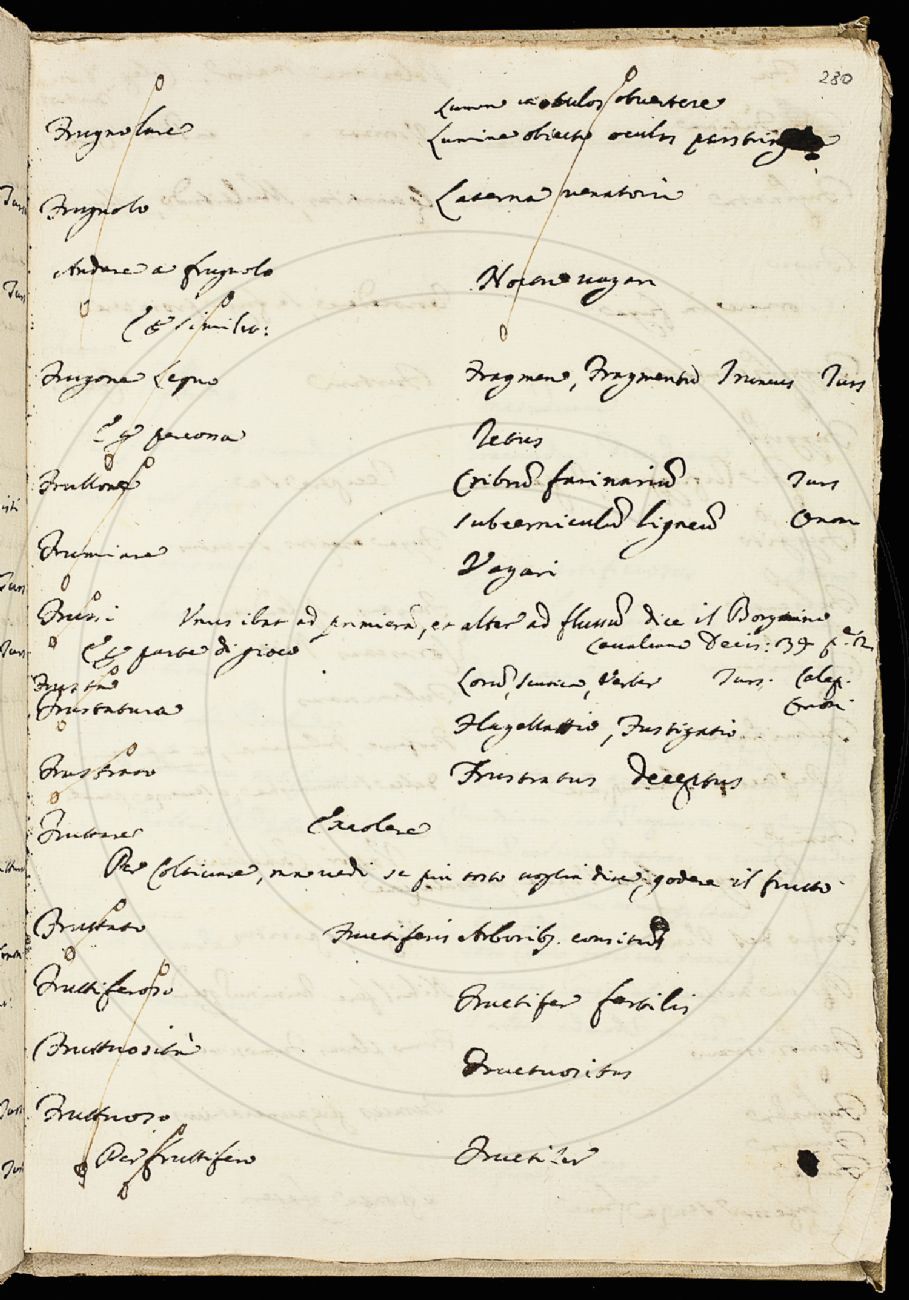 280
Frugnolare Lumen in oculos obvertere
Lumine obiecto oculos
Frugnolo Laterna venatoria
Andare a frugnolo
Noctu vagari
E similia:
Frugone Legno Fragmen, Fragmentũ Truncus Turs
E percossa Ictus
Frullone Cribrũ farinariũ Turs
Subcerniculũ ligneũ Onom
Frumiare Vagari
Frussi Unus ibat ad primierã, et alter ad flussũ dice il
E parte di gioco Decis:
Frusta Lorũ, scutica, Verber Turs. Calep.
Frustatura Onom.
Flagellatio, Fustigatio
Frustrato Frustratus Deceptus
Fruttare Excolere
Per Coltivare, ma vedi se piu tosto voglia dire, godere il frutto
Fruttato Fructiferis Arborib. consitus
Fruttifero Fructifer fertilis
Fruttuosità Fructuositas
Fruttuoso
Per fruttifero Fructifer